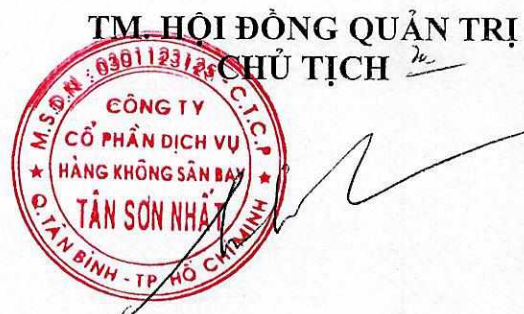 TM. HỘI ĐỒNG QUẢN TRỊ
CHỦ TỊCH
M.S.D.N : 0301123125 C.T.C.P
CÔNG TY
CỔ PHẦN DỊCH VỤ
HÀNG KHÔNG SÂN BAY
TÂN SƠN NHẤT
Q.TÂN BÌNH - TP HỒ CHÍ MINH